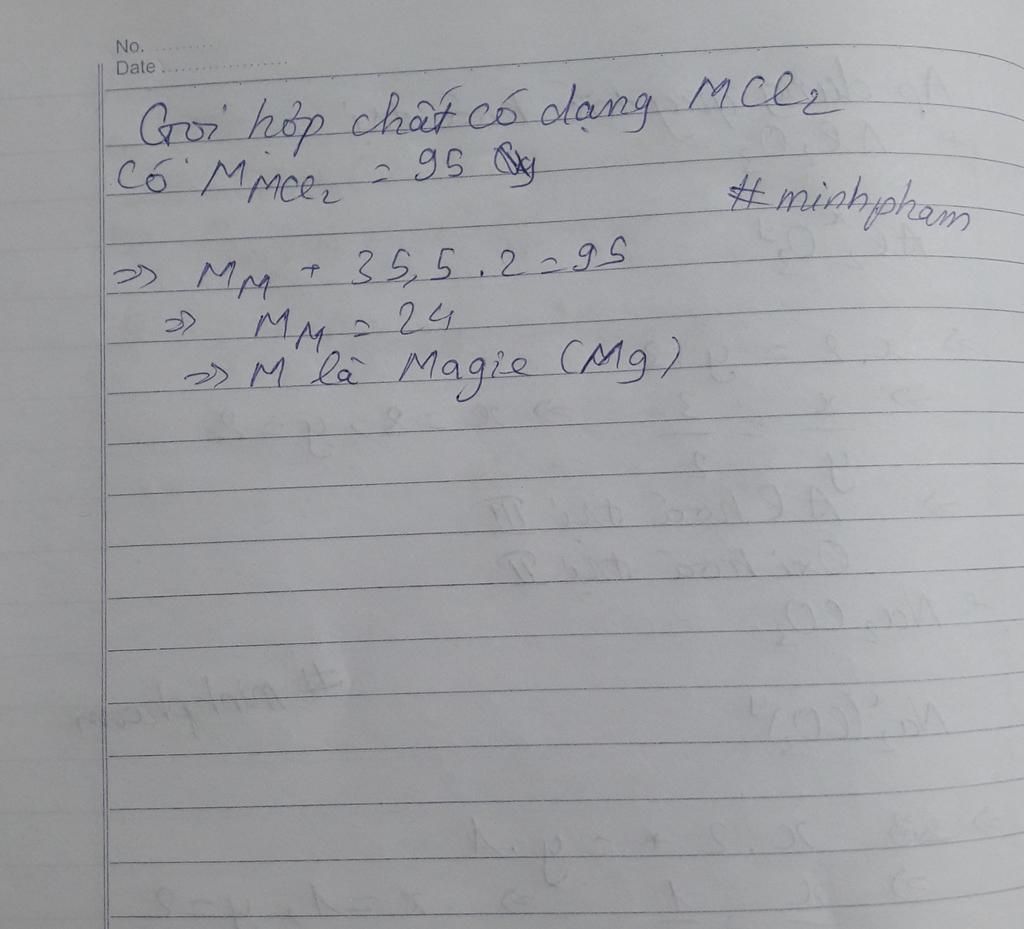 No. ..........
Date ....................
Gọi hợp chất có dạng MCl₂
Có M MCl₂ = 95
#minhpham
=> M M + 35,5 . 2 = 95
=> M M = 24
=> M là Magie (Mg)